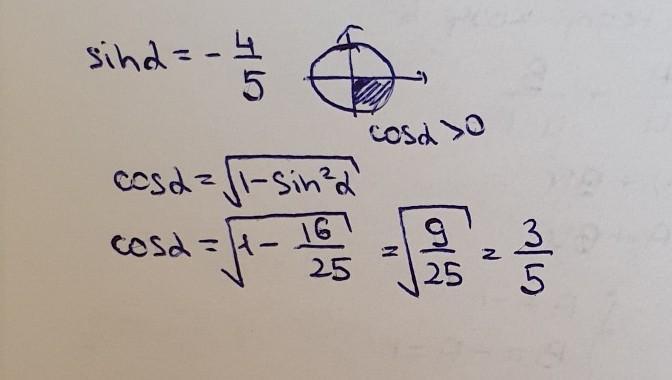 sinα = - 4/5
cosα > 0
cosα = √(1 - sin²α)
cosα = √(1 - 16/25) = √(9/25) = 3/5